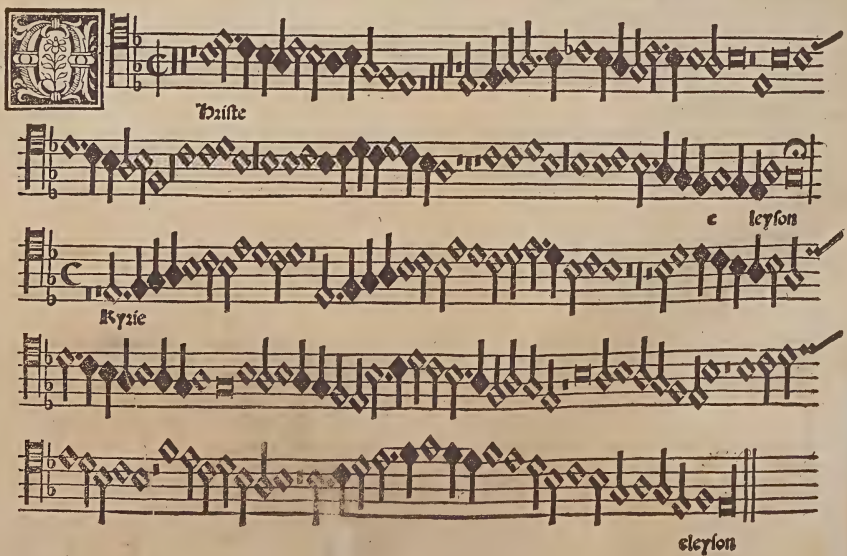 Christe
e leyson
Kyrie
eleyson